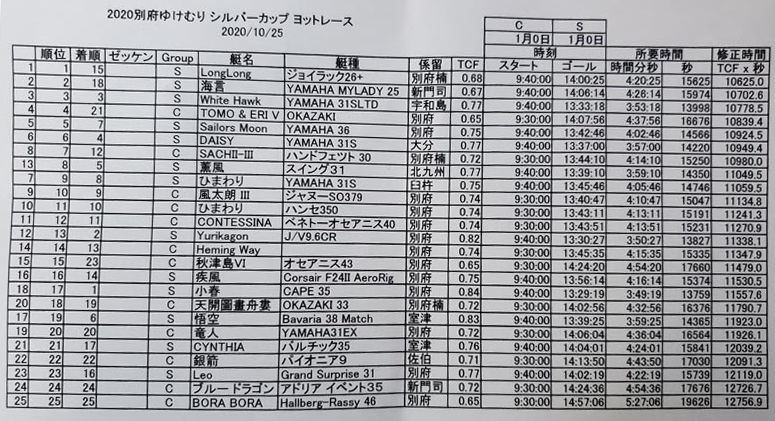 2020別府ゆけむり シルバーカップ ヨットレース
2020/10/25
C S
1月0日 1月0日
時刻 所要時間 修正時間
順位 着順 ゼッケン Group 艇名 艇種 係留 TCF スタート ゴール 時間分秒 秒 TCF x 秒
1 1 15 S LongLong ジョイラック26+ 別府楠 0.68 9:40:00 14:00:25 4:20:25 15625 10625.0
2 2 18 S 海言 YAMAHA MYLADY 25 新門司 0.67 9:40:00 14:06:14 4:26:14 15974 10702.6
3 3 3 S White Hawk YAMAHA 31SLTD 宇和島 0.77 9:40:00 13:33:18 3:53:18 13998 10778.5
4 4 21 C TOMO & ERI V OKAZAKI 別府 0.65 9:30:00 14:07:56 4:37:56 16676 10839.4
5 5 7 S Sailors Moon YAMAHA 36 別府 0.75 9:40:00 13:42:46 4:02:46 14566 10924.5
6 6 4 S DAISY YAMAHA 31S 大分 0.77 9:40:00 13:37:00 3:57:00 14220 10949.4
8 7 12 C SACHII-III ハンドフェツト 30 別府楠 0.72 9:30:00 13:44:10 4:14:10 15250 10980.0
13 8 5 S 薫風 スイング31 北九州 0.77 9:40:00 13:39:10 3:59:10 14350 11049.5
7 9 8 S ひまわり YAMAHA 31S 臼杵 0.75 9:40:00 13:45:46 4:05:46 14746 11059.5
9 10 9 C 風太朗 III ジャヌーSO379 別府 0.74 9:30:00 13:40:47 4:10:47 15047 11134.8
10 11 10 C ひまわり ハンセ350 別府 0.74 9:30:00 13:43:11 4:13:11 15191 11241.3
11 12 11 C CONTESSINA ベネトーオセアニス40 別府 0.74 9:30:00 13:43:51 4:13:51 15231 11270.9
12 13 2 S Yurikagon J/V9.6CR 別府 0.82 9:40:00 13:30:27 3:50:27 13827 11338.1
14 14 13 C Heming Way 0.74 9:30:00 13:45:35 4:15:35 15335 11347.9
15 15 23 C 秋津島VI オセアニス43 別府 0.65 9:30:00 14:24:20 4:54:20 17660 11479.0
16 16 14 S 疾風 Corsair F24II AeroRig 別府 0.75 9:40:00 13:56:14 4:16:14 15374 11530.5
18 17 1 S 小春 CAPE 35 別府 0.84 9:40:00 13:29:19 3:49:19 13759 11557.6
20 18 19 C 天開圖畫舟妻 OKAZAKI 33 別府楠 0.72 9:30:00 14:02:56 4:32:56 16376 11790.7
17 19 6 S 悟空 Bavaria 38 Match 室津 0.83 9:40:00 13:39:25 3:59:25 14365 11923.0
19 20 20 C 竜人 YAMAHA31EX 別府 0.72 9:30:00 14:06:04 4:36:04 16564 11926.1
21 21 17 S CYNTHIA バルチック35 室津 0.76 9:40:00 14:04:01 4:24:01 15841 12039.2
22 22 22 C 銀箭 パイオニア9 佐伯 0.71 9:30:00 14:13:50 4:43:50 17030 12091.3
23 23 16 S Leo Grand Surprise 31 別府 0.77 9:40:00 14:02:19 4:22:19 15739 12119.0
24 24 24 C ブルードラゴン アドリア イベント35 新門司 0.72 9:30:00 14:24:36 4:54:36 17676 12726.7
25 25 25 C BORA BORA Hallberg-Rassy 46 別府 0.65 9:30:00 14:57:06 5:27:06 19626 12756.9